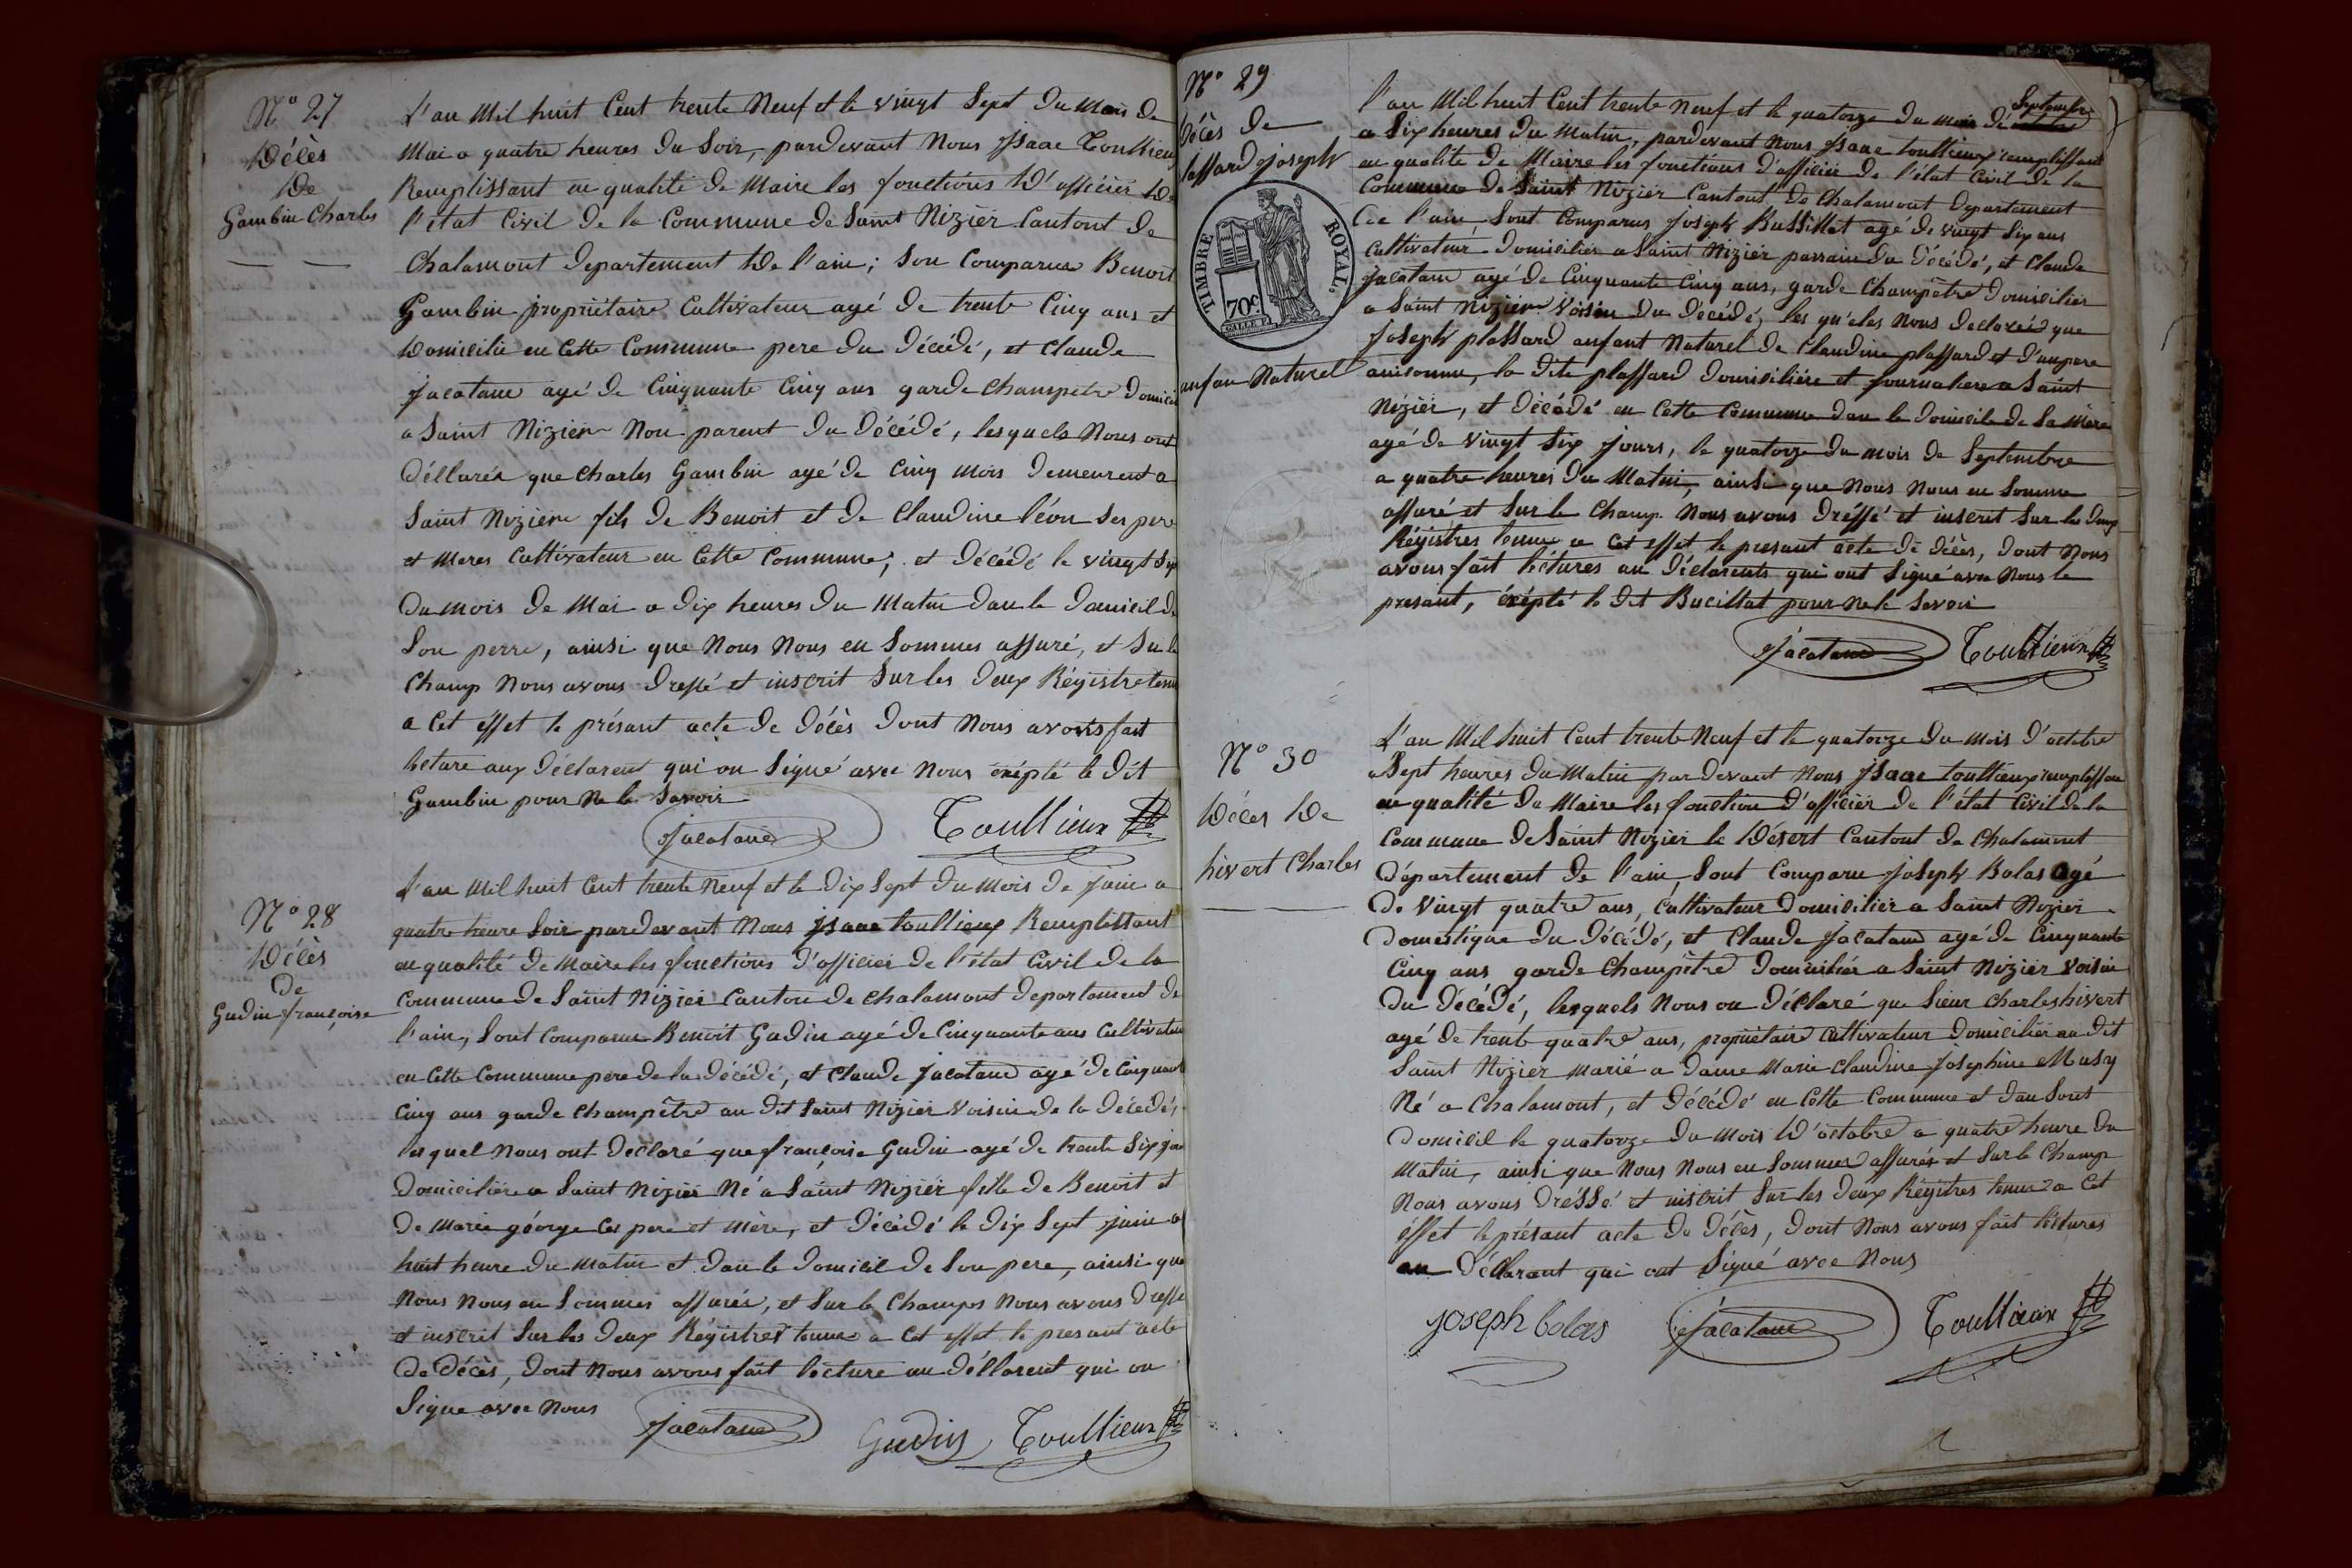 N° 27
Décès
De
Gambin Charles
L'an Mil huit Cent trente Neuf et le vingt Sept Du Mois De
Mai a quatre heures Du Soir, pardevant Nous Isaac Toullieux
Remplissant en qualité De Maire les fonctions D'officier De
l'état Civil De la Commune De Saint Nizier Cantont De
Chalamont Departement De l'ain; Son Comparus Benoit
Gambin propriétaire Cultivateur agé De trente Cinq ans et
Domicilié en Cette Commune pere Du Décédé, et Claude
Jacatane agé De Cinquante Cinq ans garde Champetre Domicilié
a Saint Nizier Non parent Du Décédé, lesquels Nous ont
Déllarés que Charles Gambin agé De Cinq Mois Demeurent a
Saint Nizier fils De Benoit et De Claudine léon Ses pere
et Meres Cultivateur en Cette Commune; et Décédé le vingt Sept
Du mois De Mai a Dix heures Du Matin Dan le Domicil De
Son perre, ainsi que Nous Nous en Sommes assuré, et Sur le
Champ Nous avons Dressé et inscrit Sur les Deux Régistre tenu
a Cet éffet le présant acte De Décès Dont Nous avons fait
lecture aux Déclarent qui on Signé avec Nous éxépté le Dit
Gambin pour Ne le Savoir
Jacatane Toullieux
N° 28
Décès
De
Gudin françoise
L'an Mil huit Cent trente Neuf et le Dix Sept Du Mois De Juin a
quatre heure Soir pardevant Nous Isaac toullieux Remplissant
en qualité De Maire les fonctions D'officier De l'état Civil De la
Commune De Saint Nizier Canton De Chalamont Departement De
l'ain, Sont Comparus Benoit Gudin agé De Cinquante ans Cultivateur
en Cette Commune pere De la Décédé, et Claude Jacatane agé De Cinquante
Cinq ans garde Champêtre au Dit Saint Nizier Voisin De la Décédés,
lesquel Nous ont Declaré que françoise Gudin agé De trente Six jour
Domicilière a Saint Nizier Né a Saint Nizier fille De Benoit et
De Marie géorge Ces pere et Mère, et Décédé le Dix Sept juin a
huit heure Du Matin et Dan le Domicil De Son pere, ainsi que
Nous Nous en Sommes assurés, et Sur le Champs Nous avons Dressé
et inscrit Sur les Deux Régistres tenue a Cet effet le presant acte
De Décès, Dont Nous avons fait lecture au Déllarent qui on
Signe avec Nous
Jacatane Gudin Toullieux
N° 29
Décès De
plassard joseph
TIMBRE ROYAL.
70c.
SALLE F.
anfan Naturel
l'an Mil huit Cent trente Neuf et le quatorze Du mois De Septembre
a Six heures Du Matin, pardevant Nous Isaac toullieux remplissant
en qualité De Maire les fonctions D'officier De l'état Civil De la
Commune De Saint Nizier Cantont De Chalamont Departement
De l'ain, Sont Comparus Joseph Bussillat agé De vingt Six ans
Cultivateur Domicilier a Saint Nizier parrain Du Décédé, et Claude
Jacatane agé De Cinquante Cinq ans, garde Champêtre Domicilier
a Saint Nizier Voisin Du Décédé, les qu'eles Nous Declaréd que
Joseph plassard anfant Naturel De Claudine plassard et D'an pere
anconnu, la Dite plassard Domicilière et journaliere a Saint
Nizier, et Décédé en Cette Commune Dan le Domicile De Sa Mère
agé De Vingt Six jours, le quatorze Du mois De Septembre
a quatre heures Du Matin, ainsi que Nous Nous en Somme
assuré et Sur le Champ Nous avons Dréssé et inscrit Sur les Deux
Régistres tenue a Cet effet le presant acte De Décès, Dont Nous
avons fait léctures au Déclarents qui ont Signé avec Nous le
presant, éxépté le Dit Bucillat pour Ne le Savoir
Jacatane Toullieux
N° 30
Décès De
hivert Charles
L'an Mil huit Cent trente Neuf et le quatorze Du Mois D'octobre
a Sept heures Du Matin par Devant Nous Isaac toullieux remplissan
en qualité De Maire les fonction D'officier De l'état Civil De la
Commune De Saint Nizier le Désert Cantont De Chalamont
Département De l'ain Sont Comparu Joseph Bolas Agé
De Vingt quatre ans, Cultivateur Domicilier a Saint Nizier
Domestique Du Décédé, et Claude Jacatane agé De Cinquante
Cinq ans garde Champêtre Domiciliés a Saint Nizier Voisin
Du Décédé, lesquels Nous on Déclaré que Sieur Charles hivert
agé De trente quatre ans, propriétaire Cultivateur Domicilier au Dit
Saint Nizier Marié a Dame Marie Claudine Josephine Musy
Né a Chalamont, et Décédé en Cette Commune et Dan Sont
Domicil le quatorze Du Mois D'octobre a quatre heure Du
Matin, ainsi que Nous Nous en Sommes assurés et Sur le Champ
Nous avons Dréssé et inscrit Sur les Deux Régitres tenue a Cet
éffet le présant acte De Décès, Dont Nous avons fait léctures
au Déllarant qui ont Signé avec Nous
joseph bolas Jacatane Toullieux